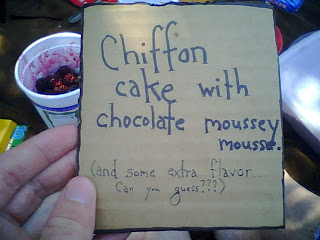 Chiffon
cake with
chocolate moussey
mousse.
(and some extra flavor....
Can you guess???)